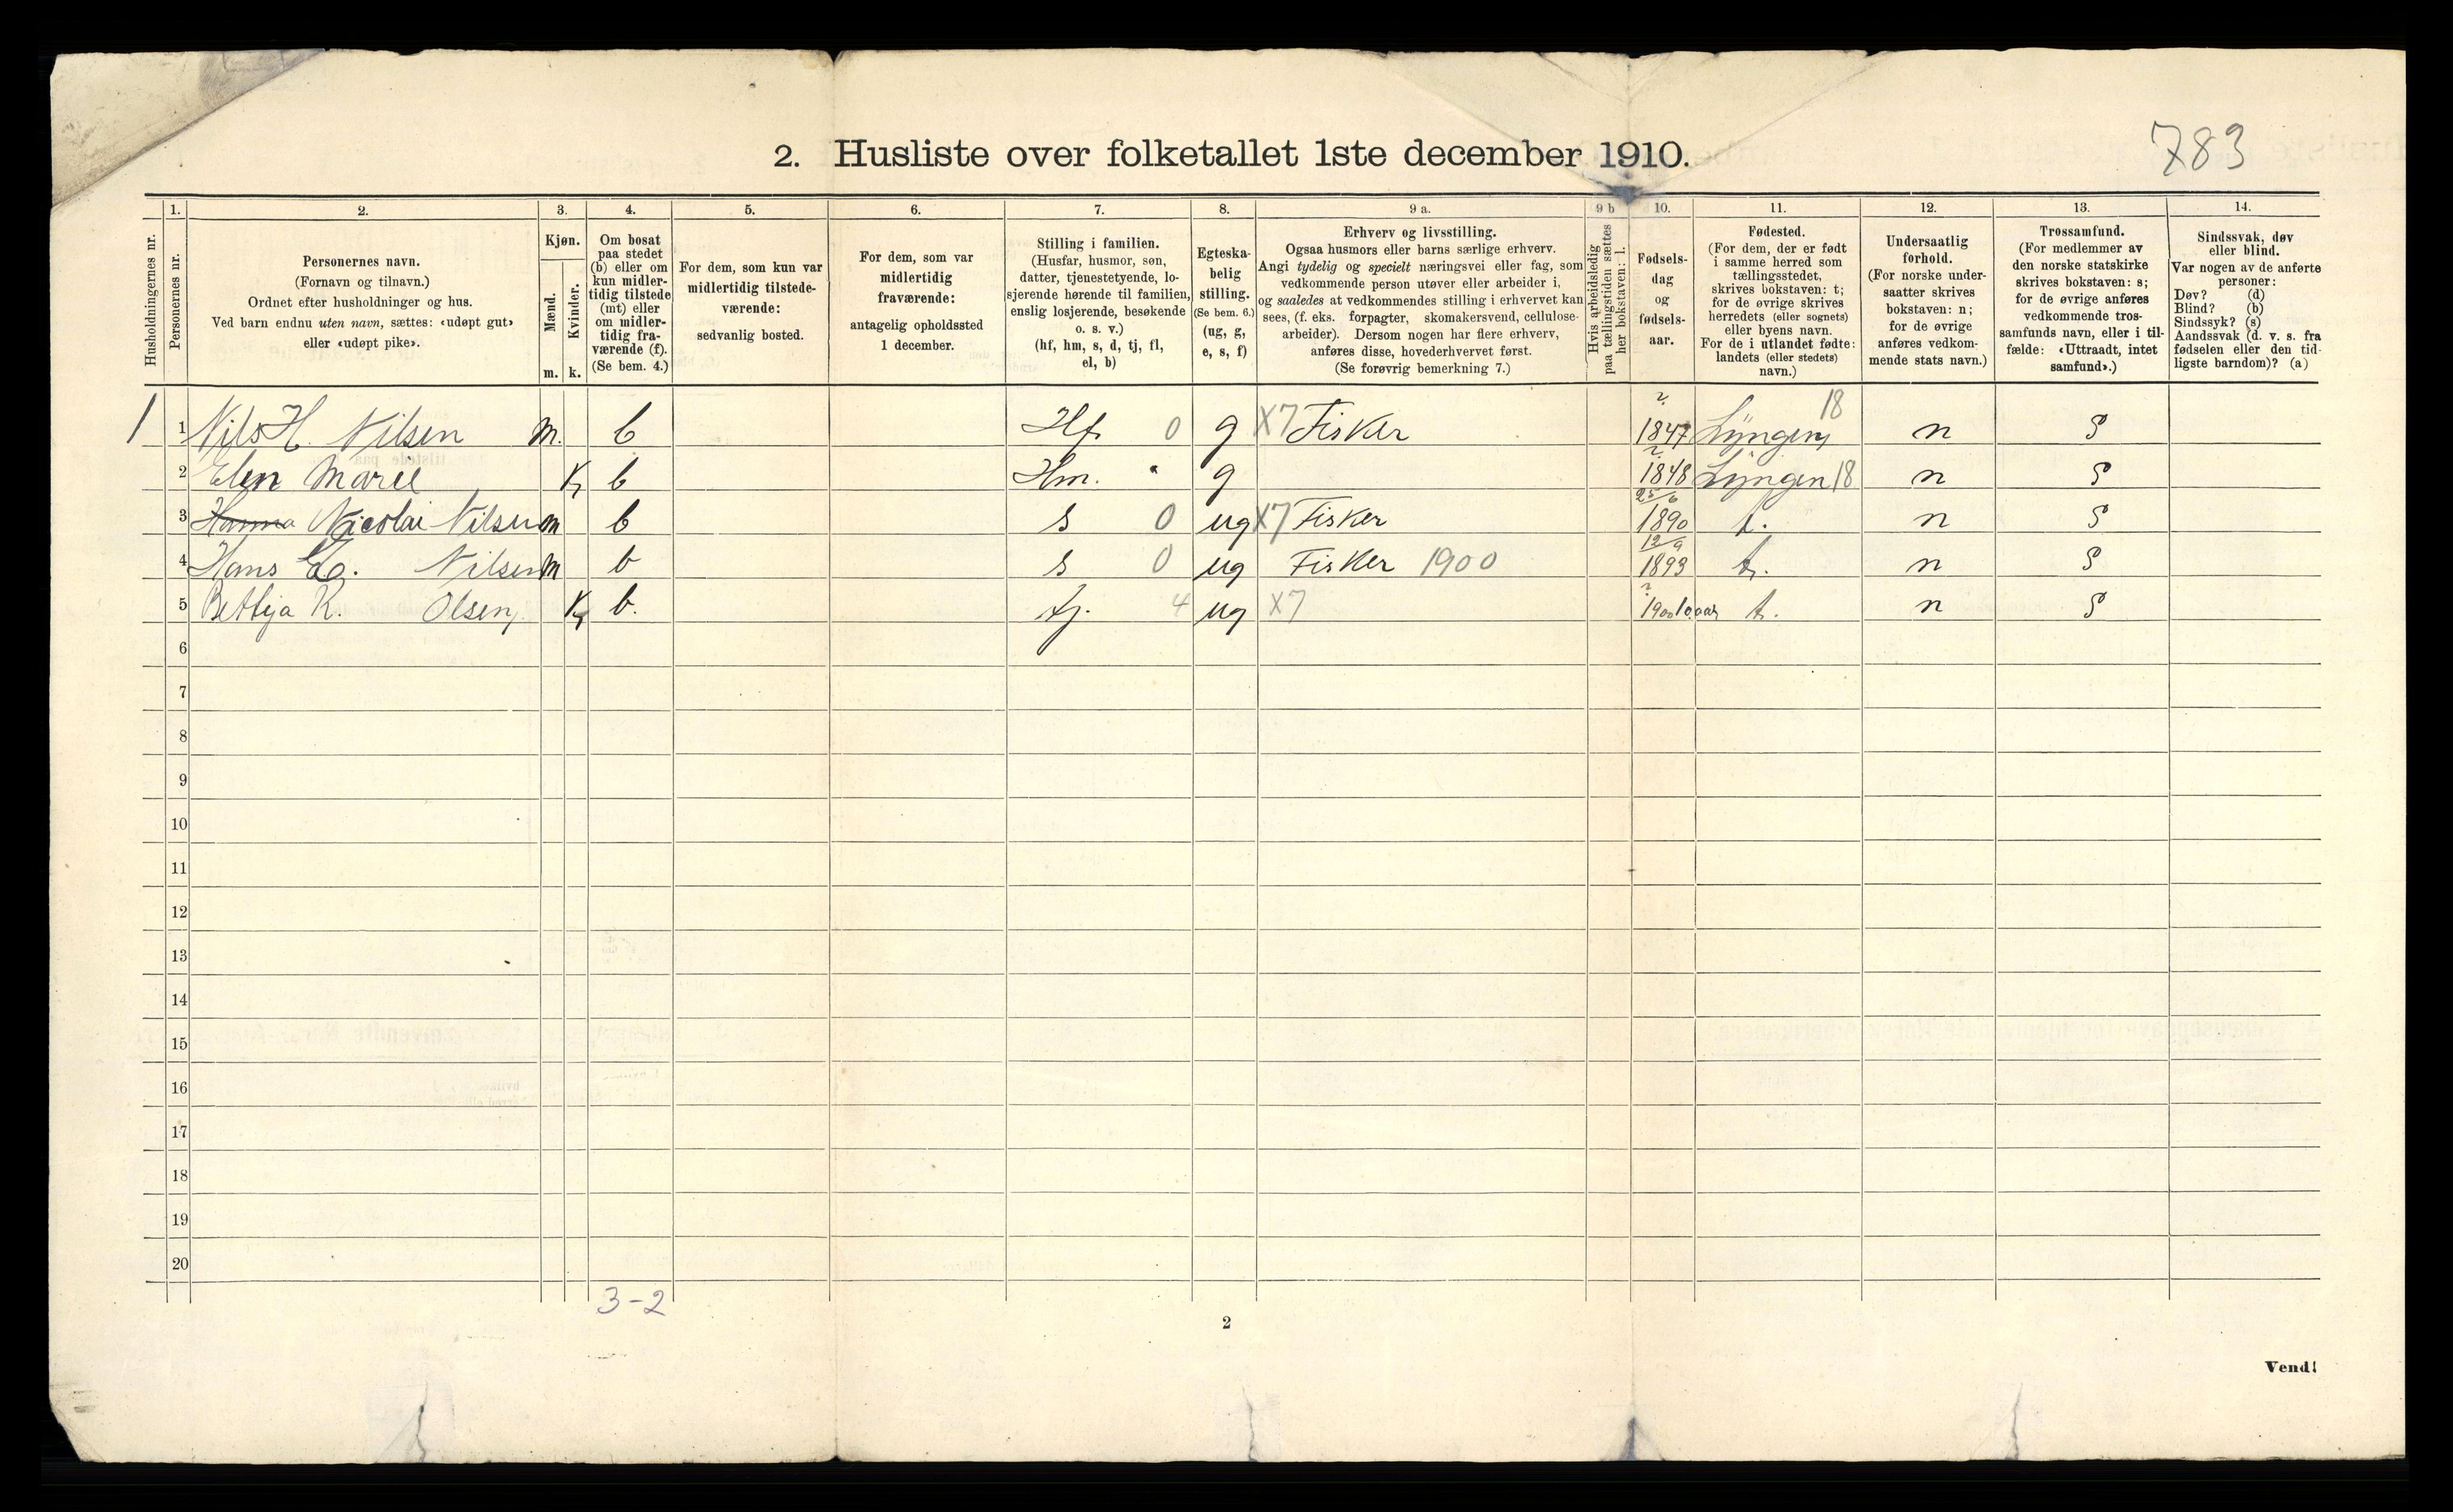 783
2. Husliste over folketallet 1ste december 1910.
Husholdningernes nr.
1.
Personernes nr.
2.
Personernes navn.
(Fornavn og tilnavn.)
Ordnet efter husholdninger og hus.
Ved barn endnu uten navn, sættes: «udøpt gut»
eller «udøpt pike».
3.
Kjøn.
Mænd.
Kvinder.
m.
k.
4.
Om bosat
paa stedet
(b) eller om
kun midler-
tidig tilstede
(mt) eller
om midler-
tidig fra-
værende (f).
(Se bem. 4.)
5.
For dem, som kun var
midlertidig tilstede-
værende:
sedvanlig bosted.
6.
For dem, som var
midlertidig
fraværende:
antagelig opholdssted
1 december.
7.
Stilling i familien.
(Husfar, husmor, søn,
datter, tjenestetyende, lo-
sjerende hørende til familien,
enslig losjerende, besøkende
o. s. v.)
(hf, hm, s, d, tj, fl,
el, b)
8.
Egteska-
belig
stilling.
(Se bem. 6.)
(ug, g,
e, s, f)
9 a.
Erhverv og livsstilling.
Ogsaa husmors eller barns særlige erhverv.
Angi tydelig og specielt næringsvei eller fag, som
vedkommende person utøver eller arbeider i,
og saaledes at vedkommendes stilling i erhvervet kan
sees, (f. eks. forpagter, skomakersvend, cellulose-
arbeider). Dersom nogen har flere erhverv,
anføres disse, hovederhvervet først.
(Se forøvrig bemerkning 7.)
9 b
Hvis arbeidsledig
paa tællingstiden sættes
her bokstaven: l.
10.
Fødsels-
dag
og
fødsels-
aar.
11.
Fødested.
(For dem, der er født
i samme herred som
tællingsstedet,
skrives bokstaven: t;
for de øvrige skrives
herredets (eller sognets)
eller byens navn.
For de i utlandet fødte:
landets (eller stedets)
navn.)
12.
Undersaatlig
forhold.
(For norske under-
saatter skrives
bokstaven: n;
for de øvrige
anføres vedkom-
mende stats navn.)
13.
Trossamfund.
(For medlemmer av
den norske statskirke
skrives bokstaven: s;
for de øvrige anføres
vedkommende tros-
samfunds navn, eller i til-
fælde: «Uttraadt, intet
samfund».)
14.
Sindssvak, døv
eller blind.
Var nogen av de anførte
personer:
Døv? (d)
Blind? (b)
Sindssyk? (s)
Aandssvak (d. v. s. fra
fødselen eller den tid-
ligste barndom)? (a)
1 1 Nils H. Nilsen m. b Hf. 0 g X7 Fisker ? 1847 Lyngen 18 n S
2 Elen Marie K b Hm. " g ? 1848 Lyngen 18 n S
3 Hanna Nicolai Nilsen m b s 0 ug X7 Fisker 25/6 1890 t. n S
4 Hans Nilsen m b s 0 ug Fisker 1900 12/9 1893 t. n S
5 Bethja K. Olsen K b. tj. 4 ug X7 ? 1900 10 aar t. n S
6
7
8
9
10
11
12
13
14
15
16
17
18
19
20
3-2
2
Vend!